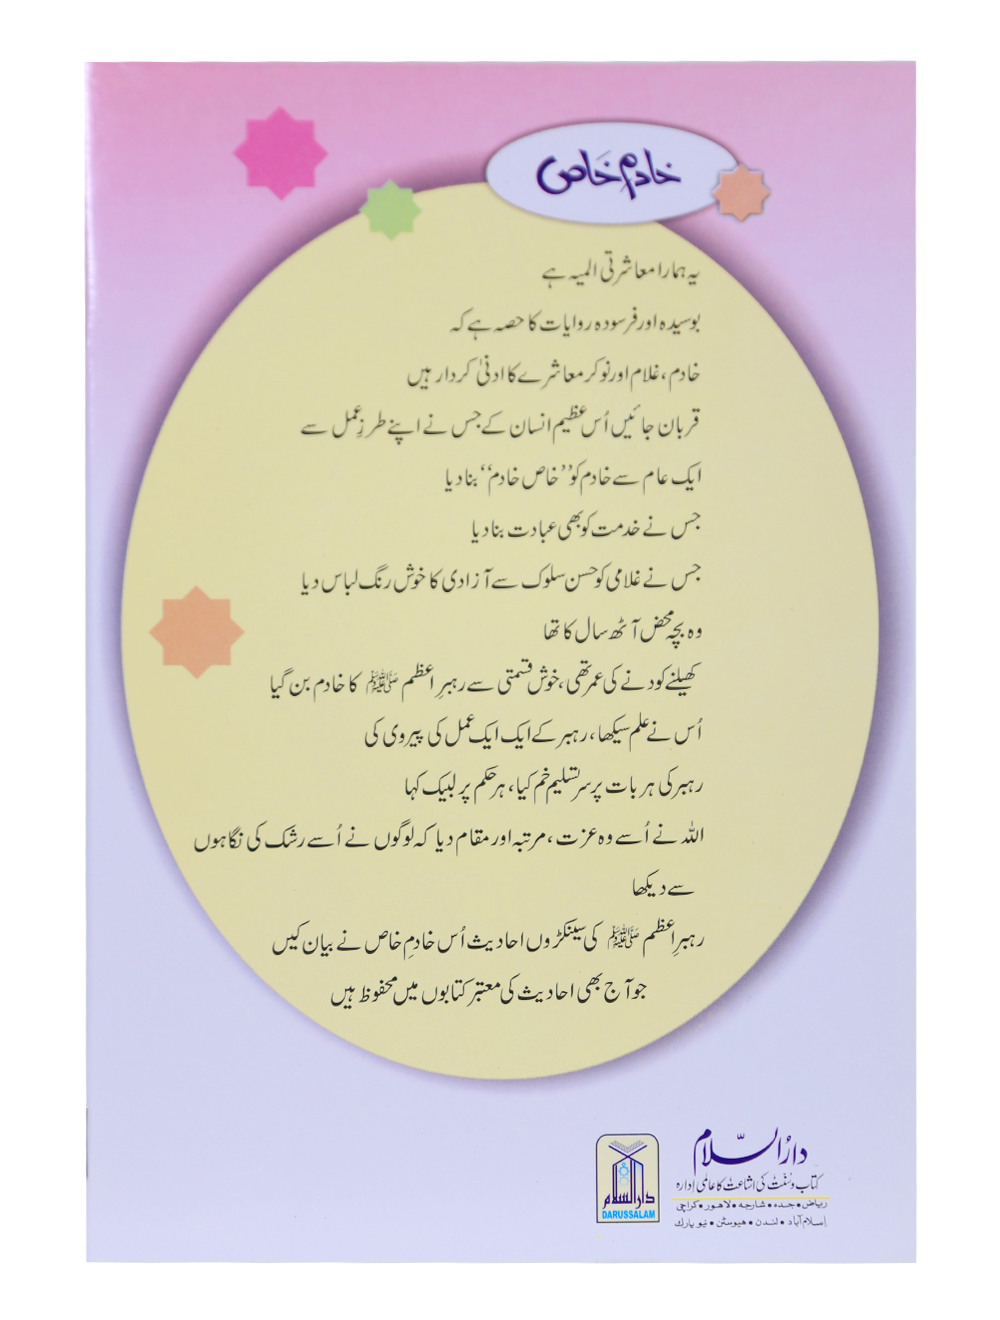 خادمِ خاص
یہ ہمارا معاشرتی المیہ ہے
بوسیدہ اور فرسودہ روایات کا حصہ ہے کہ
خادم، غلام اور نوکر معاشرے کا ادنیٰ کردار ہیں
قربان جائیں اُس عظیم انسان کے جس نے اپنے طرزِ عمل سے
ایک عام سے خادم کو ’’خاص خادم‘‘ بنا دیا
جس نے خدمت کو بھی عبادت بنا دیا
جس نے غلامی کو حسن سلوک سے آزادی کا خوش رنگ لباس دیا
وہ بچہ محض آٹھ سال کا تھا
کھیلنے کودنے کی عمر تھی، خوش قسمتی سے رہبرِ اعظم ﷺ کا خادم بن گیا
اُس نے علم سیکھا، رہبر کے ایک ایک عمل کی پیروی کی
رہبر کی ہر بات پر سرِ تسلیم خم کیا، ہر حکم پر لبیک کہا
اللہ نے اُسے وہ عزت، مرتبہ اور مقام دیا کہ لوگوں نے اُسے رشک کی نگاہوں
سے دیکھا
رہبرِ اعظم ﷺ کی سینکڑوں احادیث اُس خادمِ خاص نے بیان کیں
جو آج بھی احادیث کی معتبر کتابوں میں محفوظ ہیں
دارُالسّلام
کتاب و سنّت کی اشاعت کا عالمی ادارہ
ریاض • جدہ • شارجہ • لاہور • کراچی
اسلام آباد • لندن • ہیوسٹن • نیو یارک
دارالسلام
DARUSSALAM